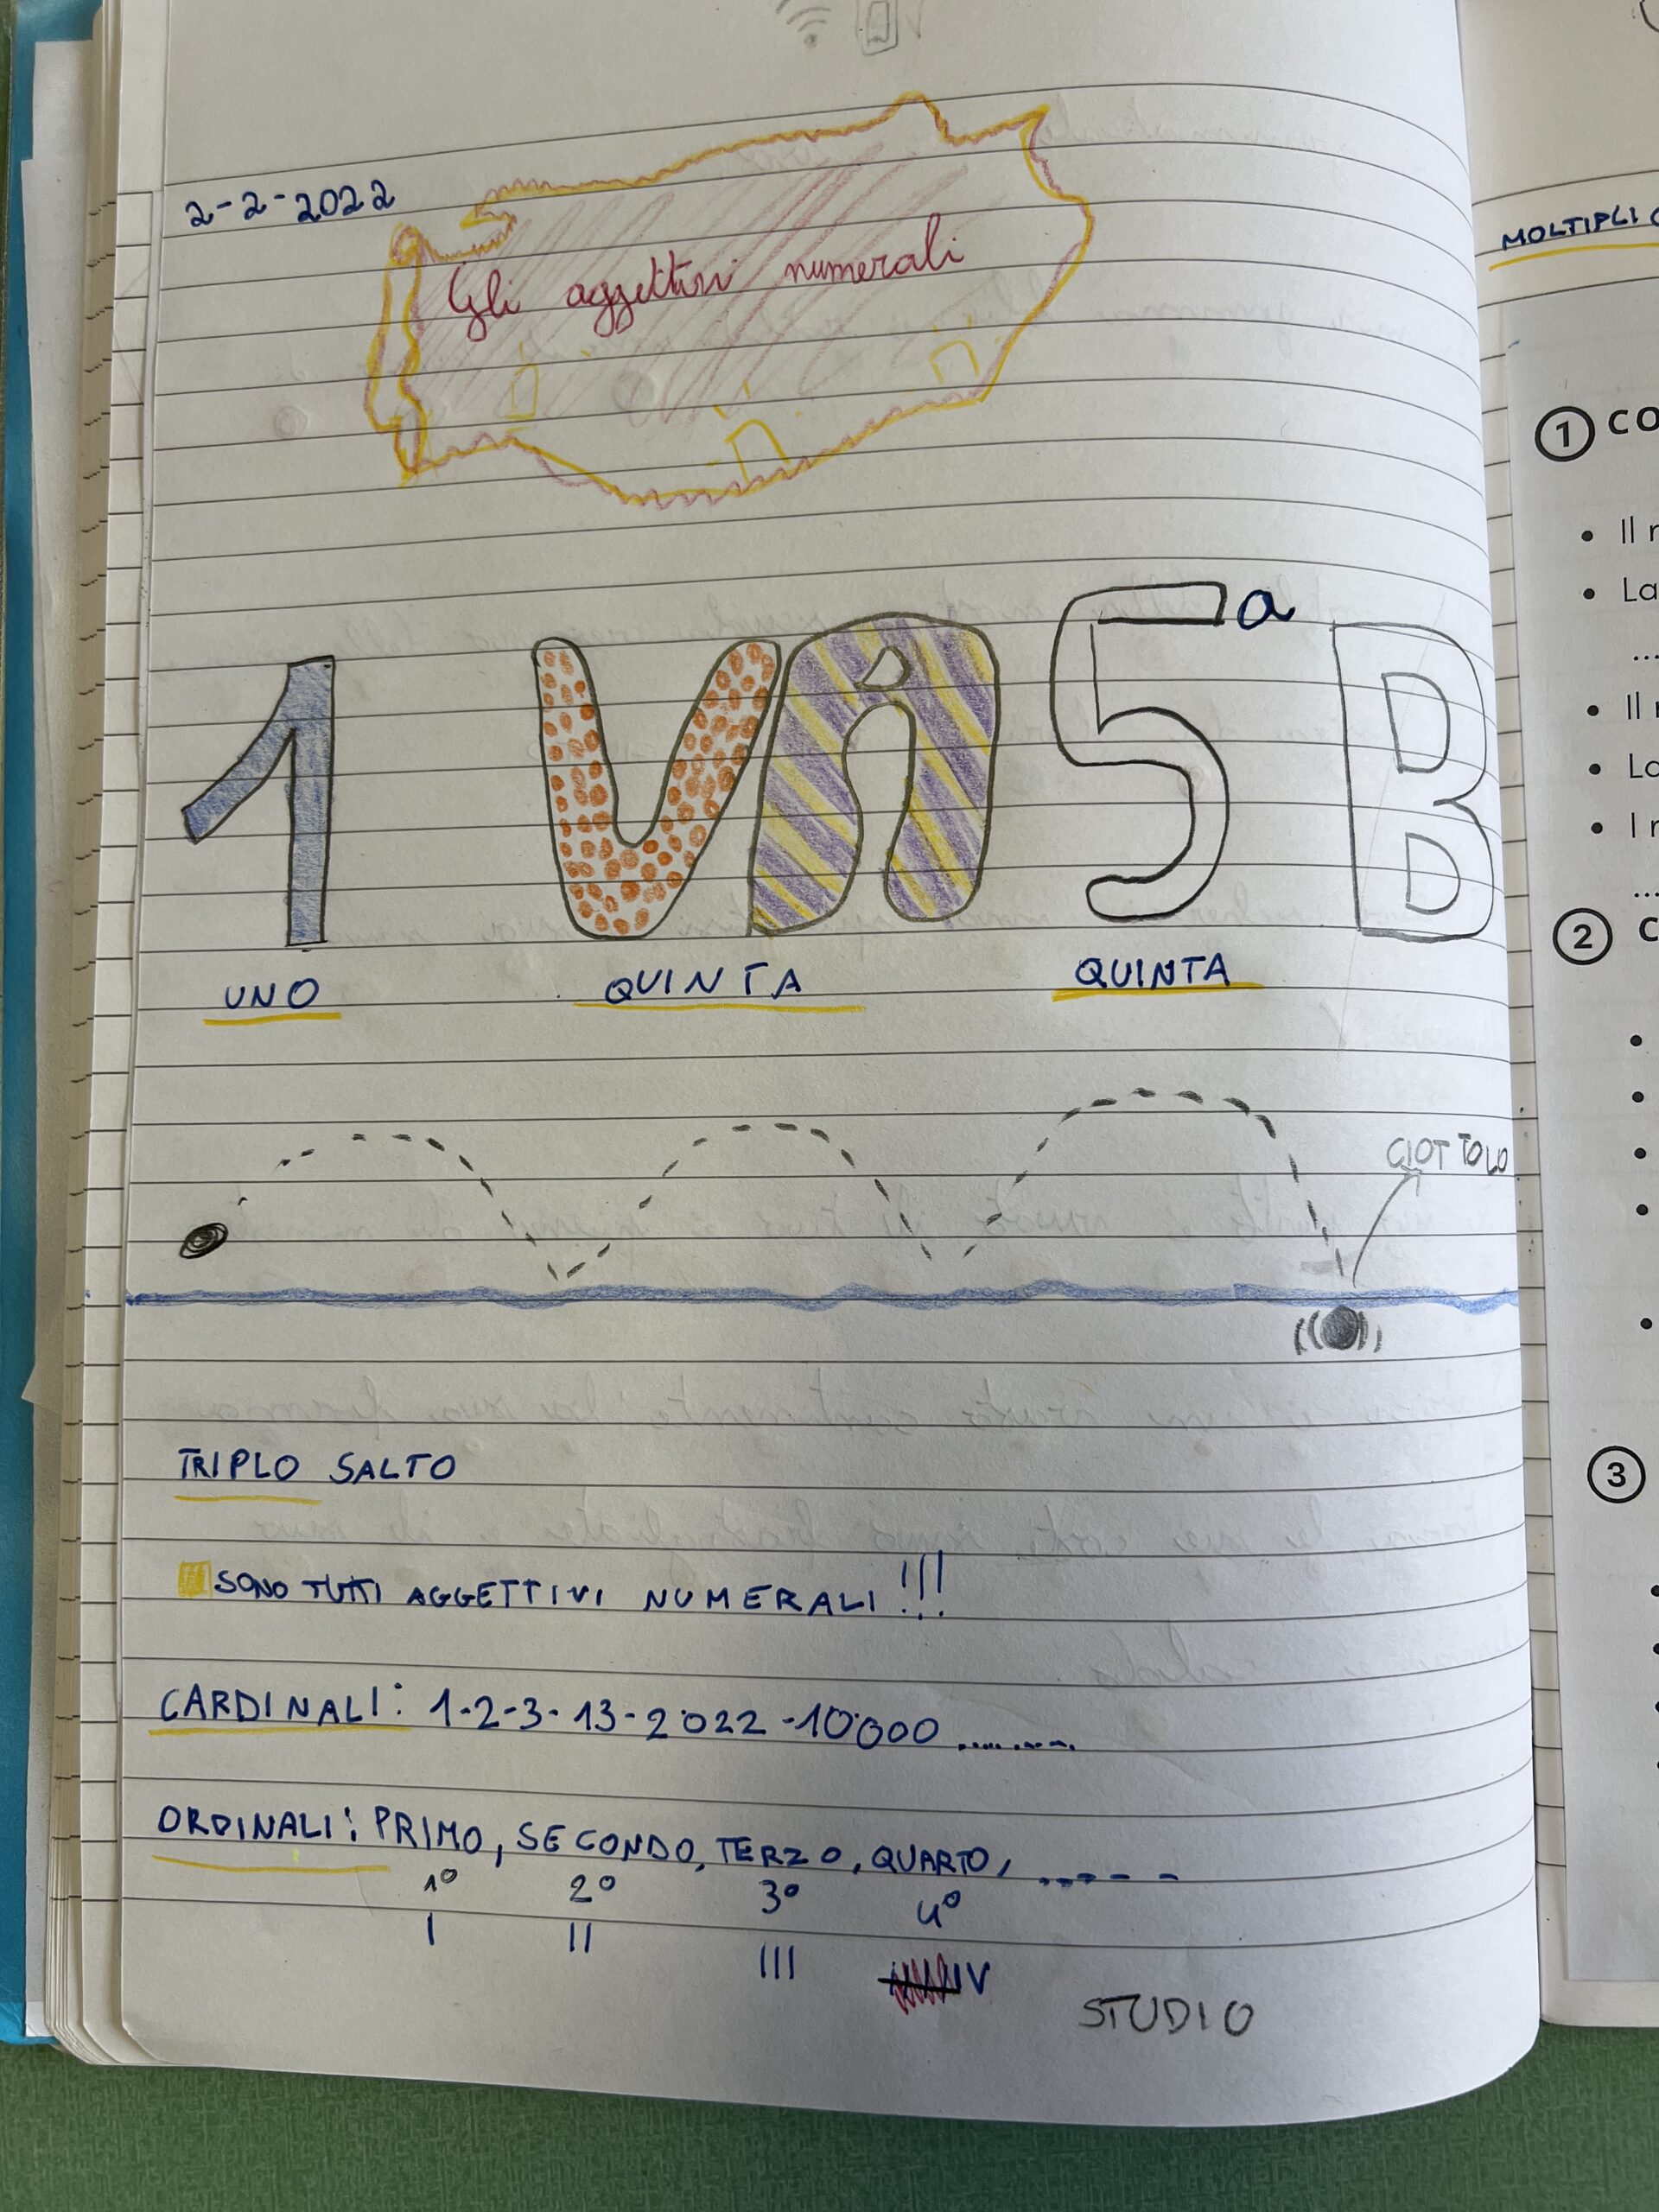 2-2-2022
Gli aggettivi numerali
1 VA 5ª B
UNO QUINTA QUINTA
CIOTTOLO
TRIPLO SALTO
SONO TUTTI AGGETTIVI NUMERALI!!!
CARDINALI: 1-2-3-13-2022-10000..........
ORDINALI: PRIMO, SECONDO, TERZO, QUARTO, ......
1° 2° 3° 4°
I II III IV
STUDIO
1
Il
La
...
Il
La
I
...
2
3